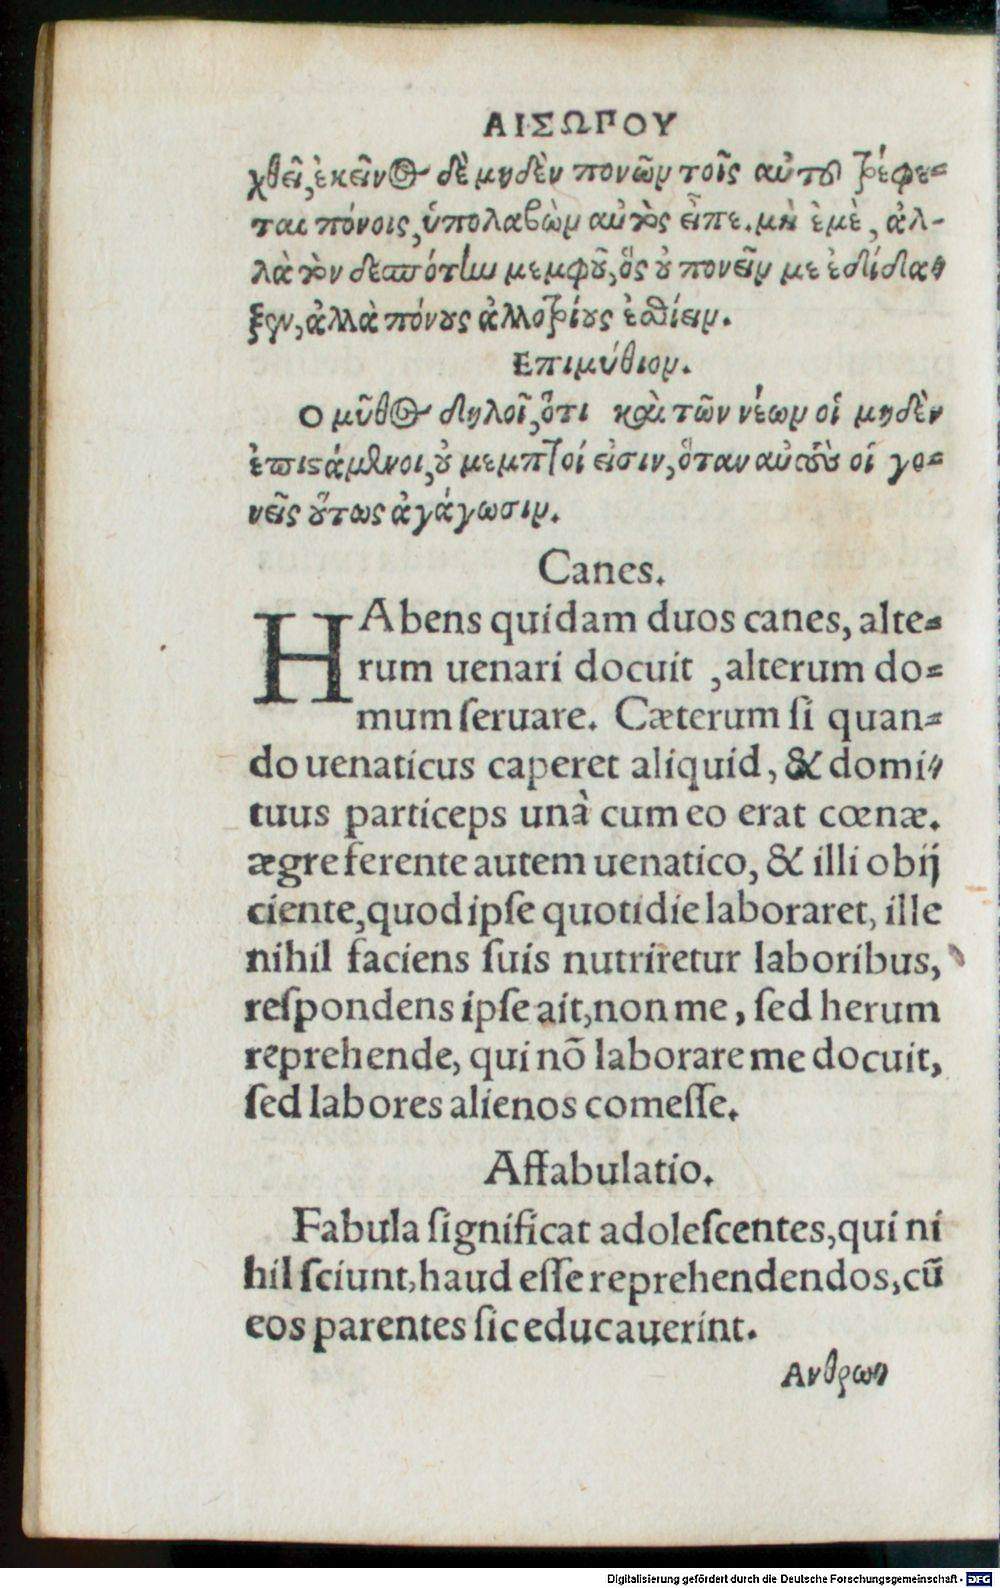 ΑΙΣΩΠΟΥ
χθεῖ, ἐκεῖνος δὲ μηδὲν πονῶν τοῖς αὐτοῦ τρέφε-
ται πόνοις, ὑπολαβὼν αὐτὸς εἶπε. μὴ ἐμὲ, ἀλ-
λὰ τὸν δεσπότην μέμφου, ὃς οὐ πονεῖν με ἐδίδα-
ξεν, ἀλλὰ πόνους ἀλλοτρίους ἐσθίειν.
Επιμύθιον.
Ο μῦθος δηλοῖ, ὅτι καὶ τῶν νέων οἱ μηδὲν
ἐπιστάμενοι, οὐ μεμπτοί εἰσιν, ὅταν αὐτοὺς οἱ γο-
νεῖς οὕτως ἀγάγωσιν.
Canes.
HAbens quidam duos canes, alte-
rum uenari docuit, alterum do-
mum ſeruare. Cæterum ſi quan-
do uenaticus caperet aliquid, & domi-
tuus particeps unà cum eo erat cœnæ.
ægre ferente autem uenatico, & illi obij
ciente, quod ipſe quotidie laboraret, ille
nihil faciens ſuis nutriretur laboribus,
reſpondens ipſe ait, non me, ſed herum
reprehende, qui nō laborare me docuit,
ſed labores alienos comeſſe.
Affabulatio.
Fabula ſignificat adoleſcentes, qui ni
hil ſciunt, haud eſſe reprehendendos, cū
eos parentes ſic educauerint.
Ανθρω-
Digitalisierung gefördert durch die Deutsche Forschungsgemeinschaft - DFG